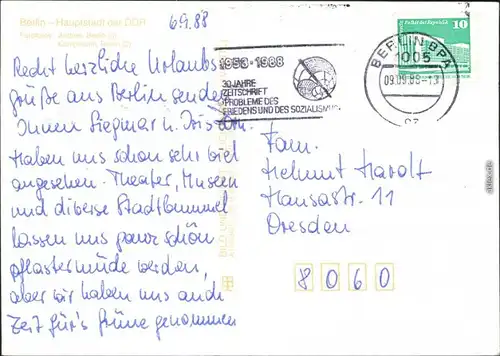 Berlin – Hauptstadt der DDR
6.9.88
Recht herzliche Urlaubs-
grüße aus Berlin senden
Ihnen Siegmar u.
Haben uns schon sehr viel
angesehen. Theater, Museen
und diverse Stadtbummel
lassen uns ganz schön
pflastermüde werden,
aber wir haben uns auch
Zeit für's Grüne genommen
1958-1988
30 JAHRE
ZEITSCHRIFT
PROBLEME DES
FRIEDENS UND DES SOZIALISMUS
BERLIN BPA
1005
09.09.88
10
Fam.
Helmut Haroft
Hansastr. 11
Dresden
8060